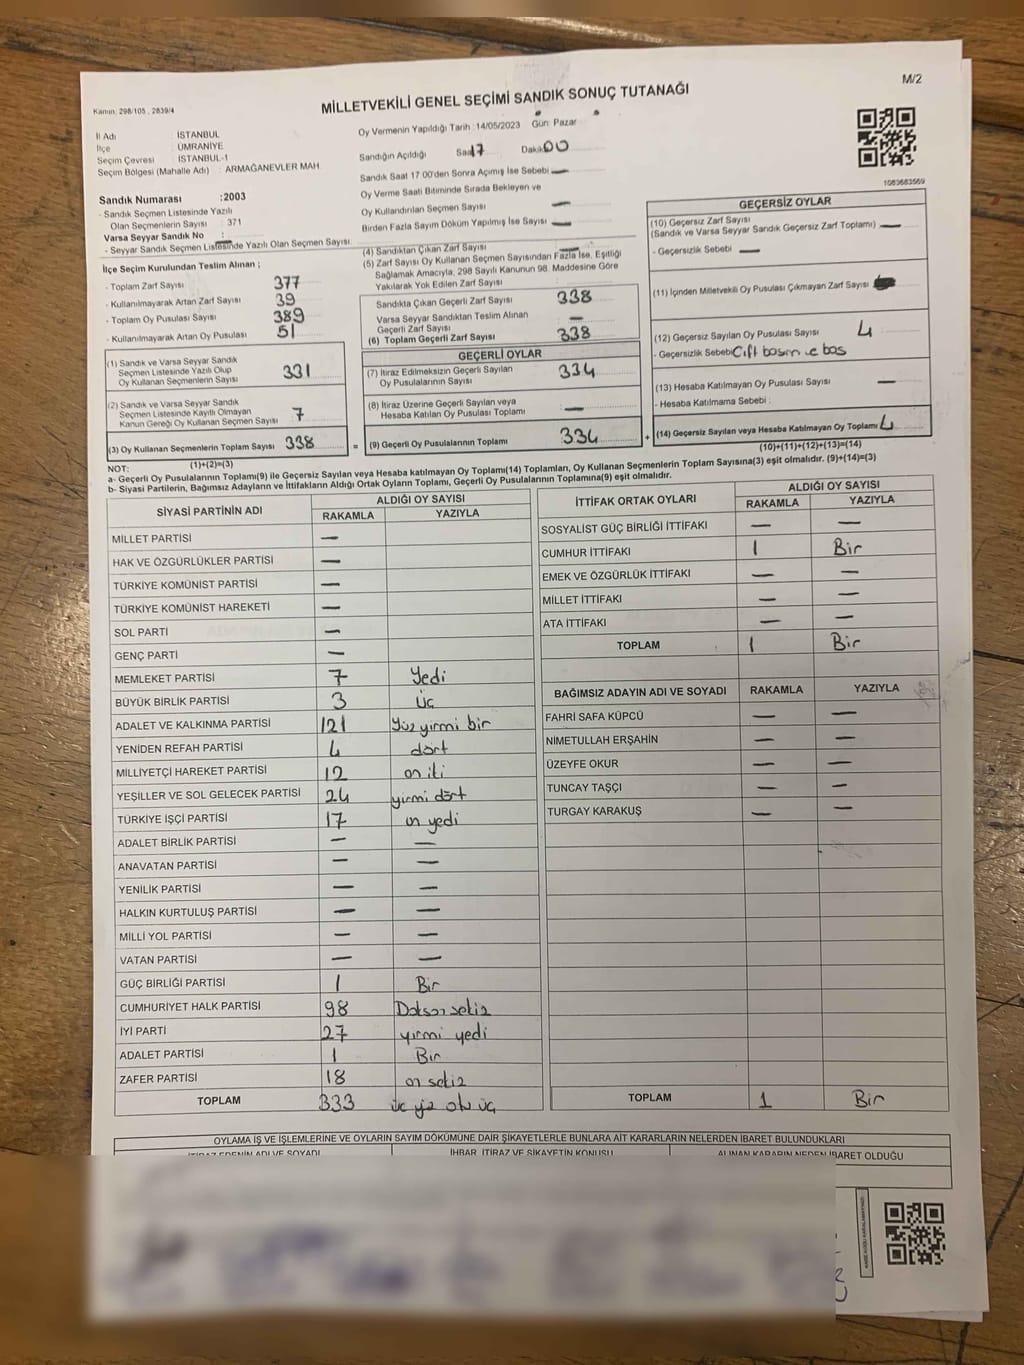 M/2
Kanun: 298/105 , 2839/4
MİLLETVEKİLİ GENEL SEÇİMİ SANDIK SONUÇ TUTANAĞI
İl Adı : İSTANBUL
İlçe : ÜMRANİYE
Seçim Çevresi : İSTANBUL-1
Seçim Bölgesi (Mahalle Adı) : ARMAĞANEVLER MAH.
Oy Vermenin Yapıldığı Tarih :14/05/2023 Gün: Pazar
Sandığın Açıldığı Saat 17 Dakika 00
Sandık Saat 17 00'den Sonra Açımış İse Sebebi —
Oy Verme Saati Bitiminde Sırada Bekleyen ve
Oy Kullandırılan Seçmen Sayısı —
Birden Fazla Sayım Döküm Yapılmış İse Sayısı —
1083683569
Sandık Numarası :2003
- Sandık Seçmen Listesinde Yazılı
Olan Seçmenlerin Sayısı : 371
Varsa Seyyar Sandık No : —
- Seyyar Sandık Seçmen Listesinde Yazılı Olan Seçmen Sayısı:
İlçe Seçim Kurulundan Teslim Alınan ;
- Toplam Zarf Sayısı 377
- Kullanılmayarak Artan Zarf Sayısı 39
- Toplam Oy Pusulası Sayısı 389
- Kullanılmayarak Artan Oy Pusulası 51
(1) Sandık ve Varsa Seyyar Sandık
Seçmen Listesinde Yazılı Olup
Oy Kullanan Seçmenlerin Sayısı 331
(2) Sandık ve Varsa Seyyar Sandık
Seçmen Listesinde Kayıtlı Olmayan
Kanun Gereği Oy Kullanan Seçmen Sayısı 7
(3) Oy Kullanan Seçmenlerin Toplam Sayısı 338
(1)+(2)=(3)
(4) Sandıktan Çıkan Zarf Sayısı —
(5) Zarf Sayısı Oy Kullanan Seçmen Sayısından Fazla İse, Eşitliği
Sağlamak Amacıyla, 298 Sayılı Kanunun 98. Maddesine Göre
Yakılarak Yok Edilen Zarf Sayısı
Sandıkta Çıkan Geçerli Zarf Sayısı 338
Varsa Seyyar Sandıktan Teslim Alınan
Geçerli Zarf Sayısı —
(6) Toplam Geçerli Zarf Sayısı 338
GEÇERLİ OYLAR
(7) İtiraz Edilmeksizin Geçerli Sayılan
Oy Pusulalarının Sayısı 334
(8) İtiraz Üzerine Geçerli Sayılan veya
Hesaba Katılan Oy Pusulası Toplamı —
= (9) Geçerli Oy Pusulalarının Toplamı 334 +
GEÇERSİZ OYLAR
(10) Geçersiz Zarf Sayısı
(Sandık ve Varsa Seyyar Sandık Geçersiz Zarf Toplamı) —
- Geçersizlik Sebebi —
(11) İçinden Milletvekili Oy Pusulası Çıkmayan Zarf Sayısı
(12) Geçersiz Sayılan Oy Pusulası Sayısı 4
- Geçersizlik Sebebi
(13) Hesaba Katılmayan Oy Pusulası Sayısı —
- Hesaba Katılmama Sebebi :
(14) Geçersiz Sayılan veya Hesaba Katılmayan Oy Toplamı 4
(10)+(11)+(12)+(13)=(14)
NOT:
a- Geçerli Oy Pusulalarının Toplamı(9) ile Geçersiz Sayılan veya Hesaba katılmayan Oy Toplamı(14) Toplamları, Oy Kullanan Seçmenlerin Toplam Sayısına(3) eşit olmalıdır. (9)+(14)=(3)
b- Siyasi Partilerin, Bağımsız Adayların ve İttifakların Aldığı Ortak Oyların Toplamı, Geçerli Oy Pusulalarının Toplamına(9) eşit olmalıdır.
SİYASİ PARTİNİN ADI ALDIĞI OY SAYISI
RAKAMLA YAZIYLA
MİLLET PARTİSİ —
HAK VE ÖZGÜRLÜKLER PARTİSİ —
TÜRKİYE KOMÜNİST PARTİSİ —
TÜRKİYE KOMÜNİST HAREKETİ —
SOL PARTİ —
GENÇ PARTİ —
MEMLEKET PARTİSİ 7 Yedi
BÜYÜK BİRLİK PARTİSİ 3 Üç
ADALET VE KALKINMA PARTİSİ 121 Yüz yirmi bir
YENİDEN REFAH PARTİSİ 4 dört
MİLLİYETÇİ HAREKET PARTİSİ 12 on iki
YEŞİLLER VE SOL GELECEK PARTİSİ 24 yirmi dört
TÜRKİYE İŞÇİ PARTİSİ 17 on yedi
ADALET BİRLİK PARTİSİ — —
ANAVATAN PARTİSİ — —
YENİLİK PARTİSİ — —
HALKIN KURTULUŞ PARTİSİ — —
MİLLİ YOL PARTİSİ — —
VATAN PARTİSİ — —
GÜÇ BİRLİĞİ PARTİSİ 1 Bir
CUMHURİYET HALK PARTİSİ 98 Doksan sekiz
İYİ PARTİ 27 yirmi yedi
ADALET PARTİSİ 1 Bir
ZAFER PARTİSİ 18 on sekiz
TOPLAM 333 üç yüz otuz üç
İTTİFAK ORTAK OYLARI ALDIĞI OY SAYISI
RAKAMLA YAZIYLA
SOSYALİST GÜÇ BİRLİĞİ İTTİFAKI — —
CUMHUR İTTİFAKI 1 Bir
EMEK VE ÖZGÜRLÜK İTTİFAKI — —
MİLLET İTTİFAKI — —
ATA İTTİFAKI — —
TOPLAM 1 Bir
BAĞIMSIZ ADAYIN ADI VE SOYADI RAKAMLA YAZIYLA
FAHRİ SAFA KÜPCÜ — —
NİMETULLAH ERŞAHİN — —
ÜZEYFE OKUR — —
TUNCAY TAŞÇI — —
TURGAY KARAKUŞ — —
TOPLAM 1 Bir
OYLAMA İŞ VE İŞLEMLERİNE VE OYLARIN SAYIM DÖKÜMÜNE DAİR ŞİKAYETLERLE BUNLARA AİT KARARLARIN NELERDEN İBARET BULUNDUKLARI
İTİRAZ EDENİN ADI VE SOYADI İHBAR, İTİRAZ VE ŞİKAYETİN KONUSU ALINAN KARARIN NEDEN İBARET OLDUĞU